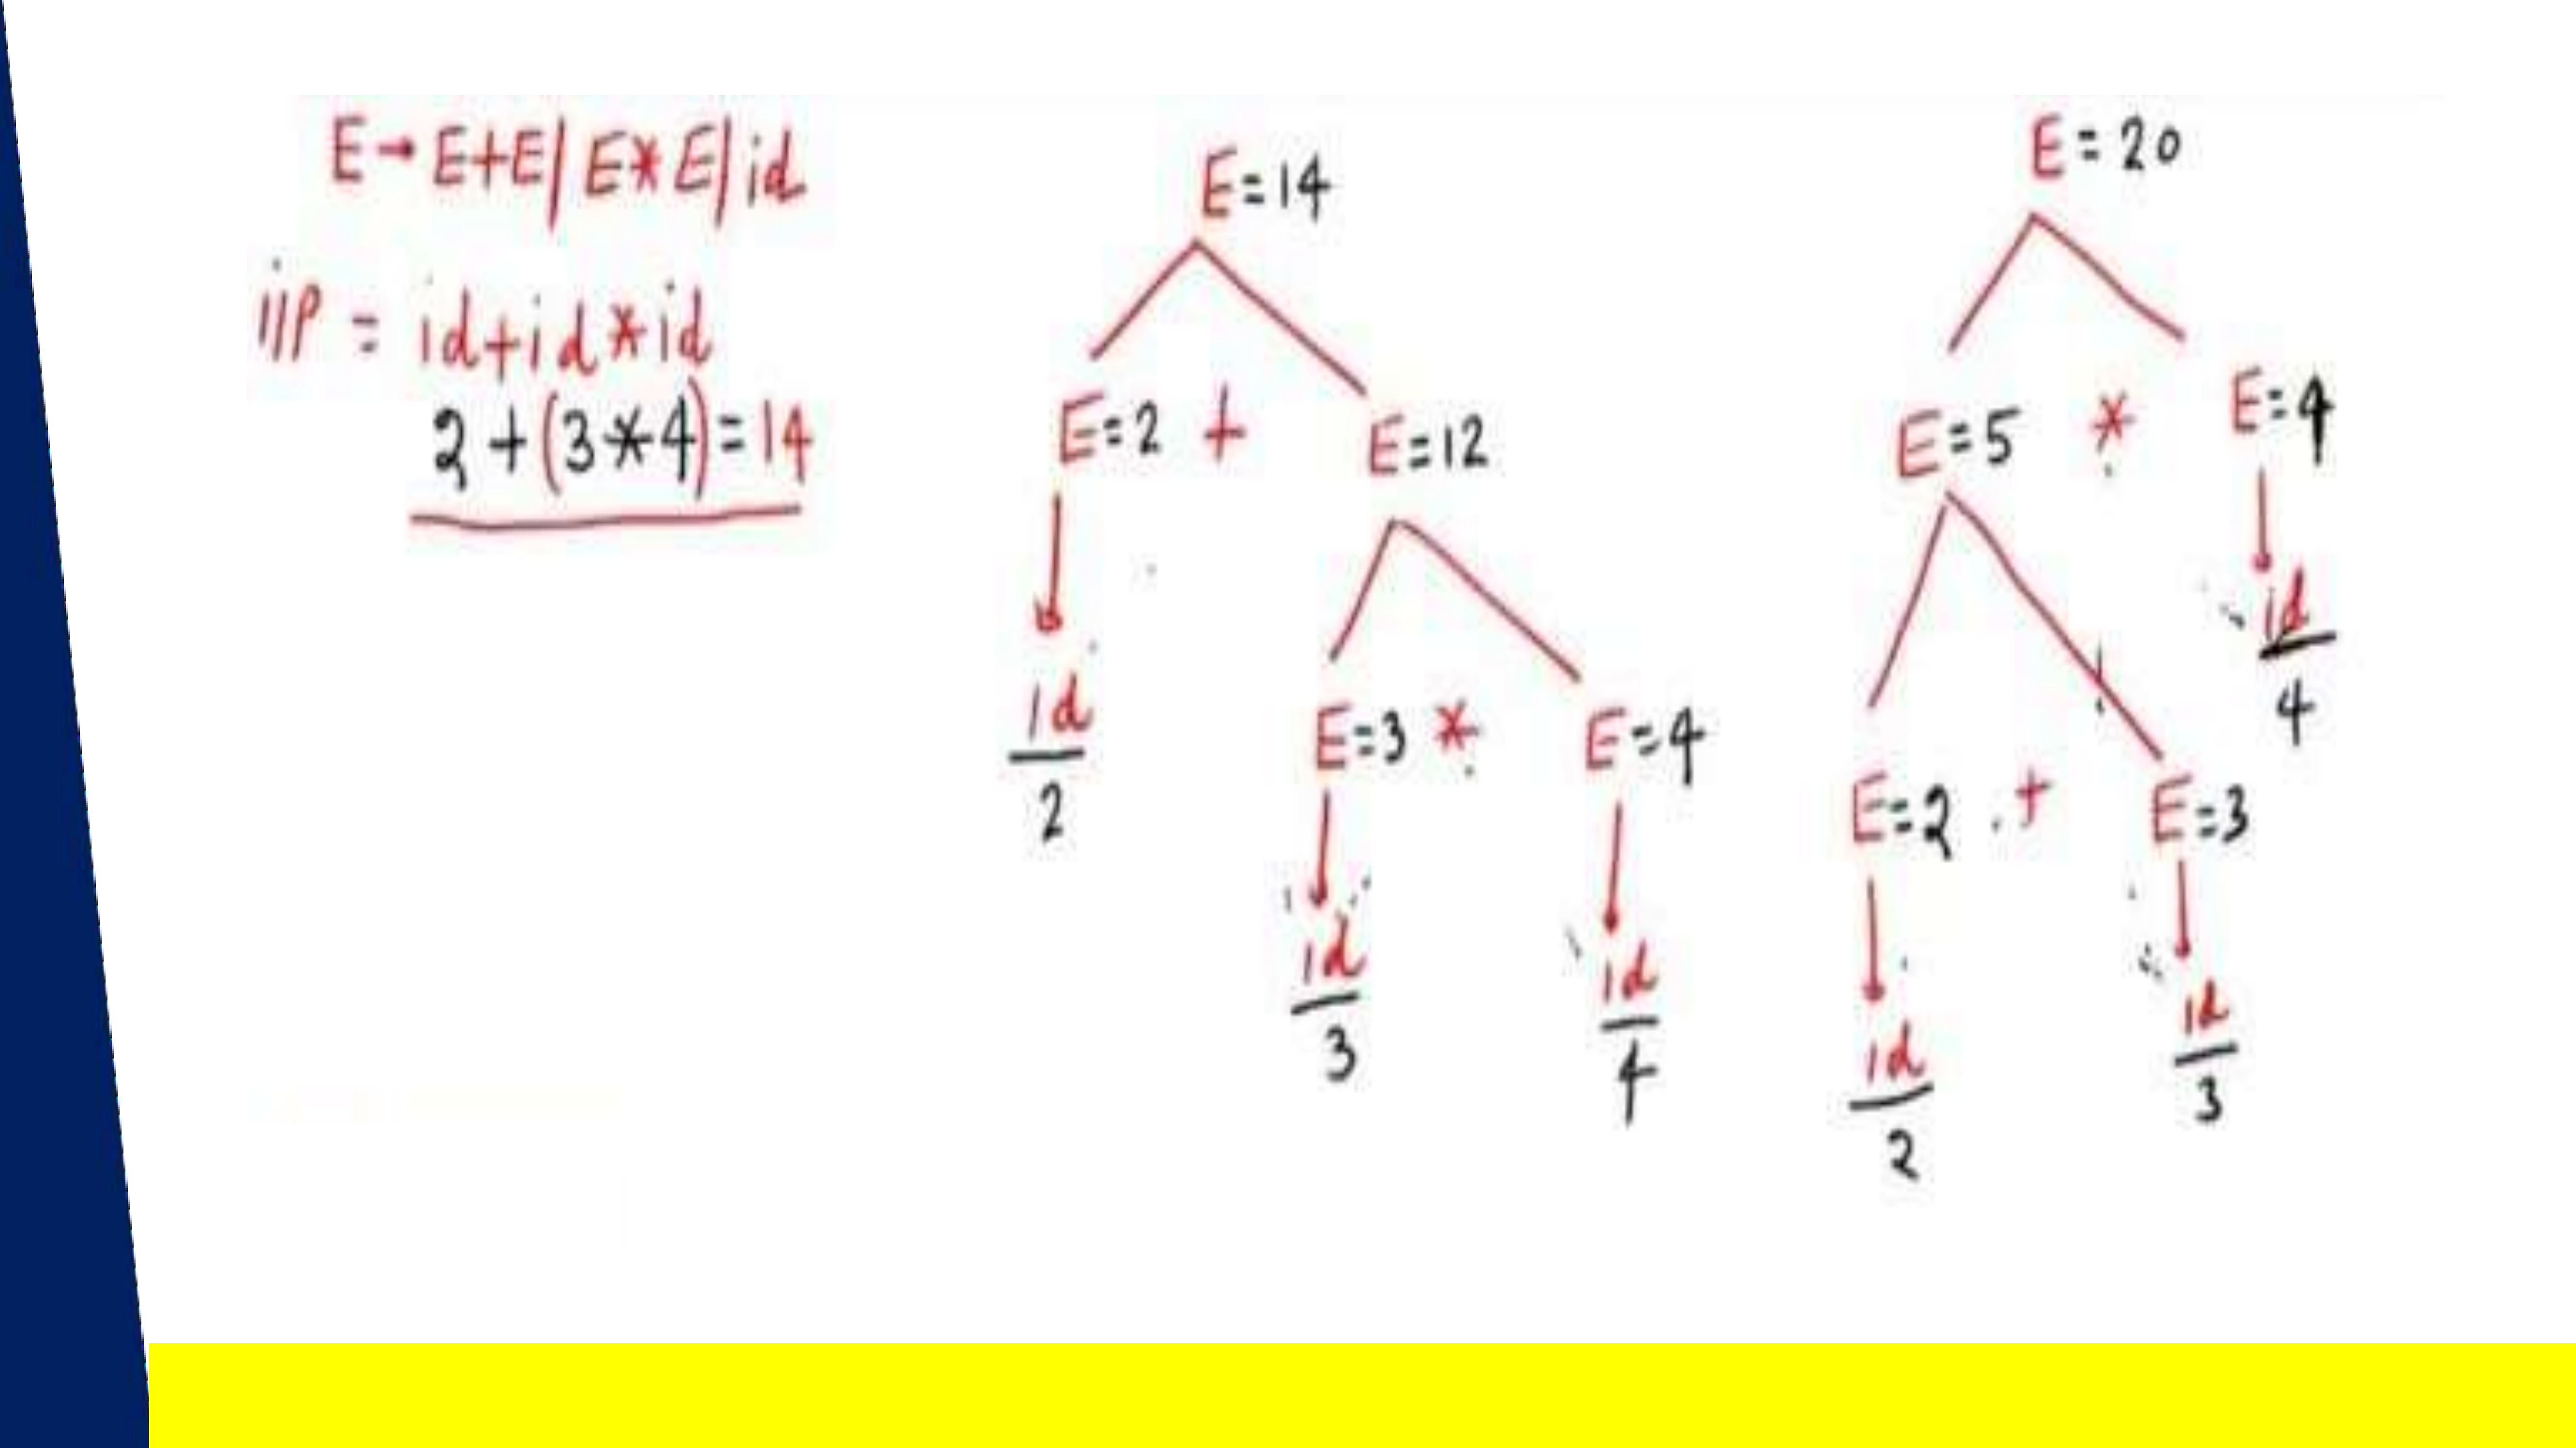 E→E+E|E*E|id
i/p = id+id*id
2+(3*4)=14
E=14
E=2 + E=12
id
2
E=3 * E=4
id
3
id
4
E=20
E=5 * E=4
id
4
E=2 + E=3
id
2
id
3